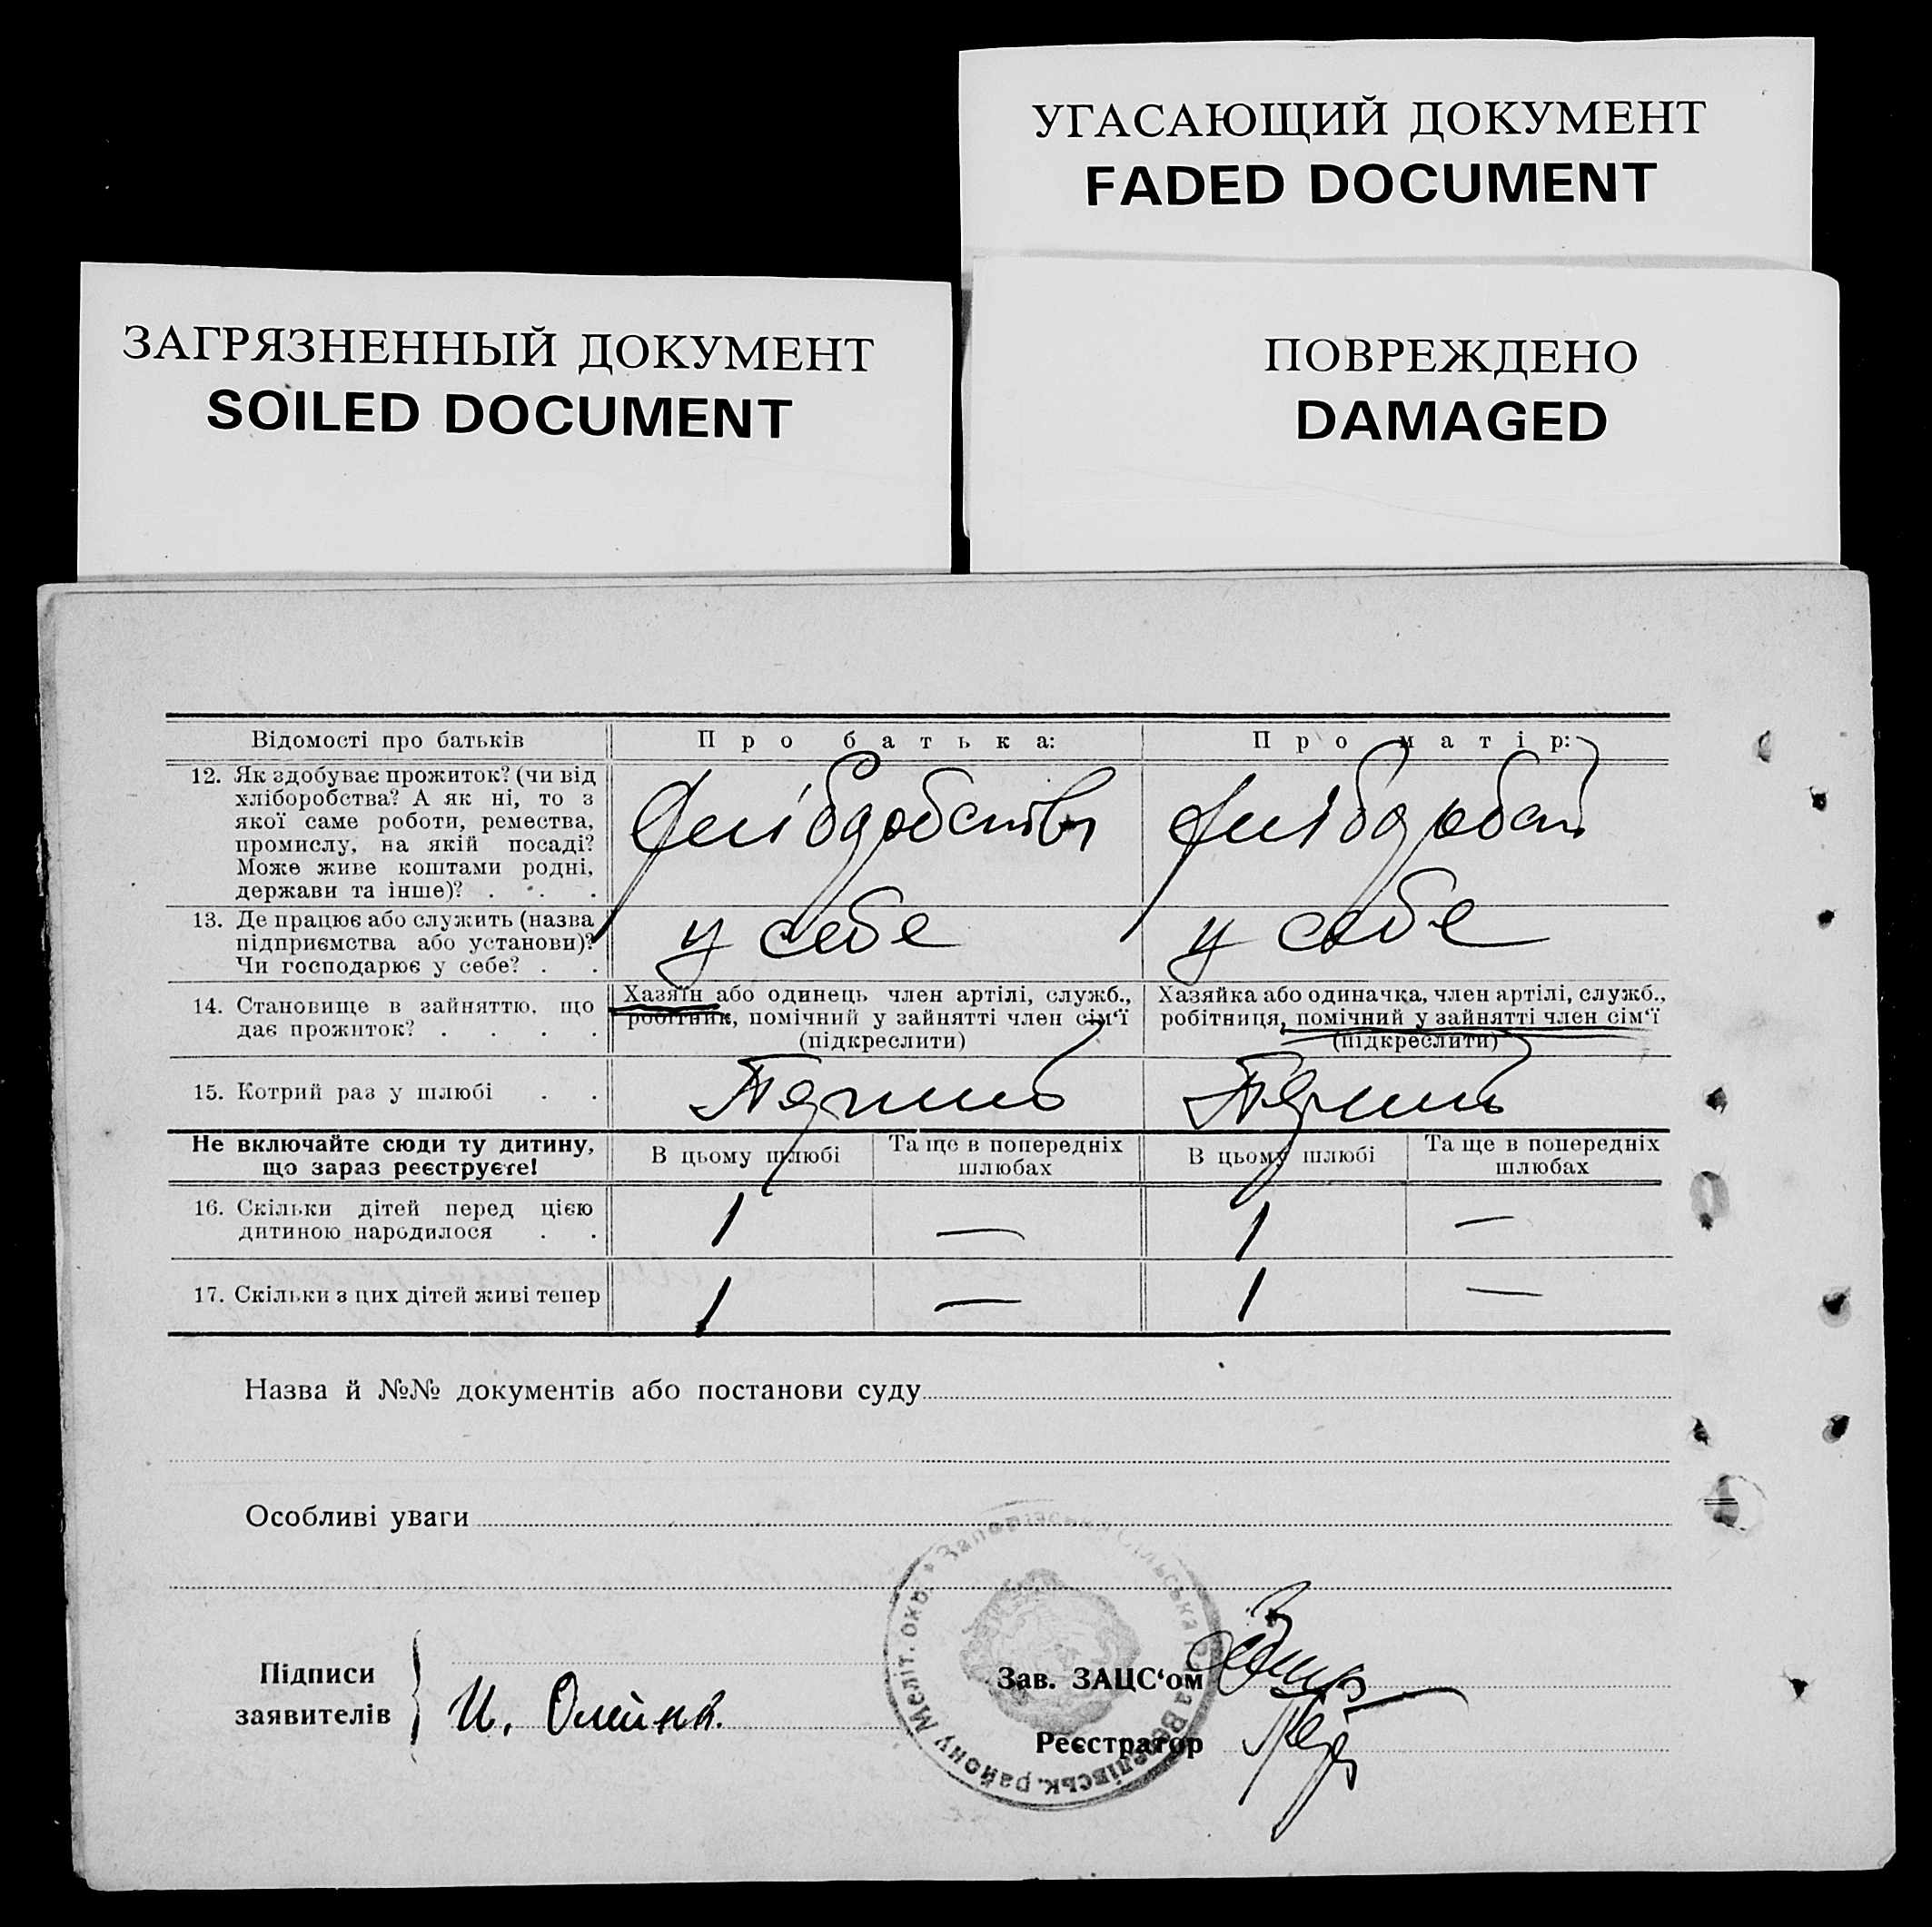 УГАСАЮЩИЙ ДОКУМЕНТ
FADED DOCUMENT
ЗАГРЯЗНЕННЫЙ ДОКУМЕНТ
SOILED DOCUMENT
ПОВРЕЖДЕНО
DAMAGED
Відомості про батьків
Про батька:
Про матір:
12. Як здобуває прожиток? (чи від
хліборобства? А як ні, то з
якої саме роботи, ремества,
промислу, на якій посаді?
Може живе коштами родні,
держави та інше)? . . .
13. Де працює або служить (назва
підприємства або установи)?
Чи господарює у себе? . .
у себе
у себе
14. Становище в зайняттю, що
дає прожиток? . . . .
Хазяїн або одинець член артілі, служб.,
робітник, помічний у зайнятті член сім'ї
(підкреслити)
Хазяйка або одиначка, член артілі, служб.,
робітниця, помічний у зайнятті член сім'ї
(підкреслити)
15. Котрий раз у шлюбі . .
Не включайте сюди ту дитину,
що зараз реєструєте!
В цьому шлюбі
Та ще в попередніх
шлюбах
В цьому шлюбі
Та ще в попередніх
шлюбах
16. Скільки дітей перед цією
дитиною народилося . .
1
—
1
—
17. Скільки з цих дітей живі тепер
1
—
1
—
Назва й №№ документів або постанови суду
Особливі уваги
Підписи
заявителів
И.
Зав. ЗАЦС'ом
Реєстратор
району Меліт. окр.